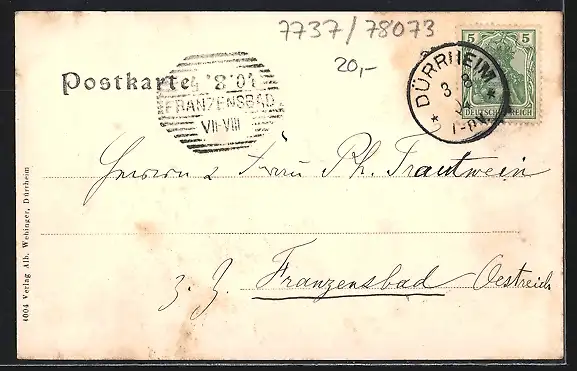 7737/78073
20,-
5 5
DEUTSCHES REICH
DÜRRHEIM
3 8
Postkarte
FRANZENSBAD
VII-VIII
Herrn & Frau Ph. Trautwein
z. Z. Franzensbad Oestreich
4004 Verlag Alb. Wehinger, Dürrheim